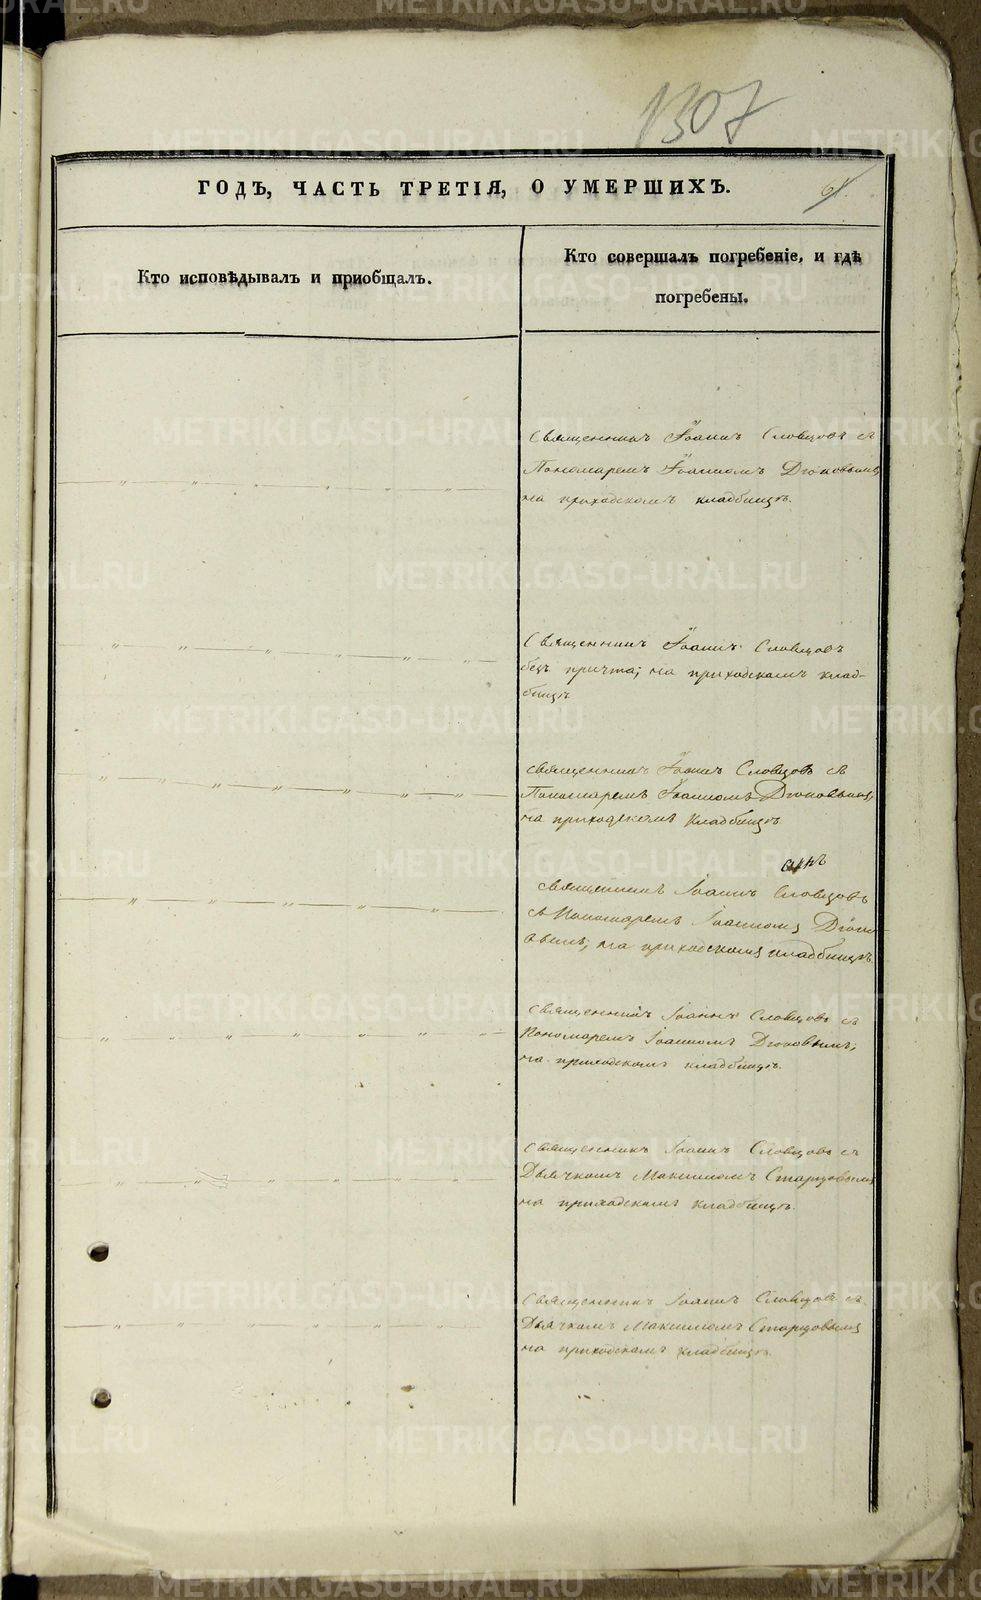 1307
ГОДЪ, ЧАСТЬ ТРЕТІЯ, О УМЕРШИХЪ.
61.
Кто исповѣдывалъ и пріобщалъ.
Кто совершалъ погребеніе, и гдѣ
погребены.
Священникъ Іоаннъ Словцовъ съ
Пономаремъ Іоанномъ Дюковымъ,
на приходскомъ кладбищѣ.
Священникъ Іоаннъ Словцовъ
безъ причта; на приходскомъ клад-
бищѣ
священникъ Іоаннъ Словцовъ съ
Пономаремъ Іоанномъ Дюковымъ,
на приходскомъ кладбищѣ
священникъ Іоаннъ Словцовъ
съ Пономаремъ Іоанномъ Дюко-
вымъ, на приходскомъ кладбищѣ.
священникъ Іоаннъ Словцовъ съ
Пономаремъ Іоанномъ Дюковымъ,
на приходскомъ кладбищѣ.
священникъ Іоаннъ Словцовъ съ
Дьячкомъ Максимомъ Старцовымъ
на приходскомъ кладбищѣ.
Священникъ Іоаннъ Словцовъ съ
Дьячкомъ Максимомъ Старцовымъ
на приходскомъ кладбищѣ.
METRIKI.GASO-URAL.RU